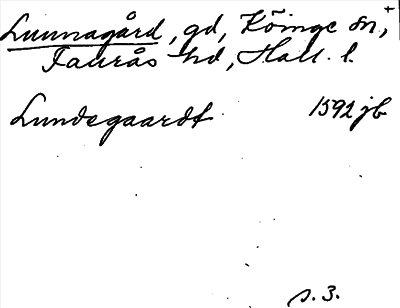 Lunnagård, gd, Köinge sn,
Faurås hd, Hall. l.
Lundegaardt 1592 jb
s. 3.